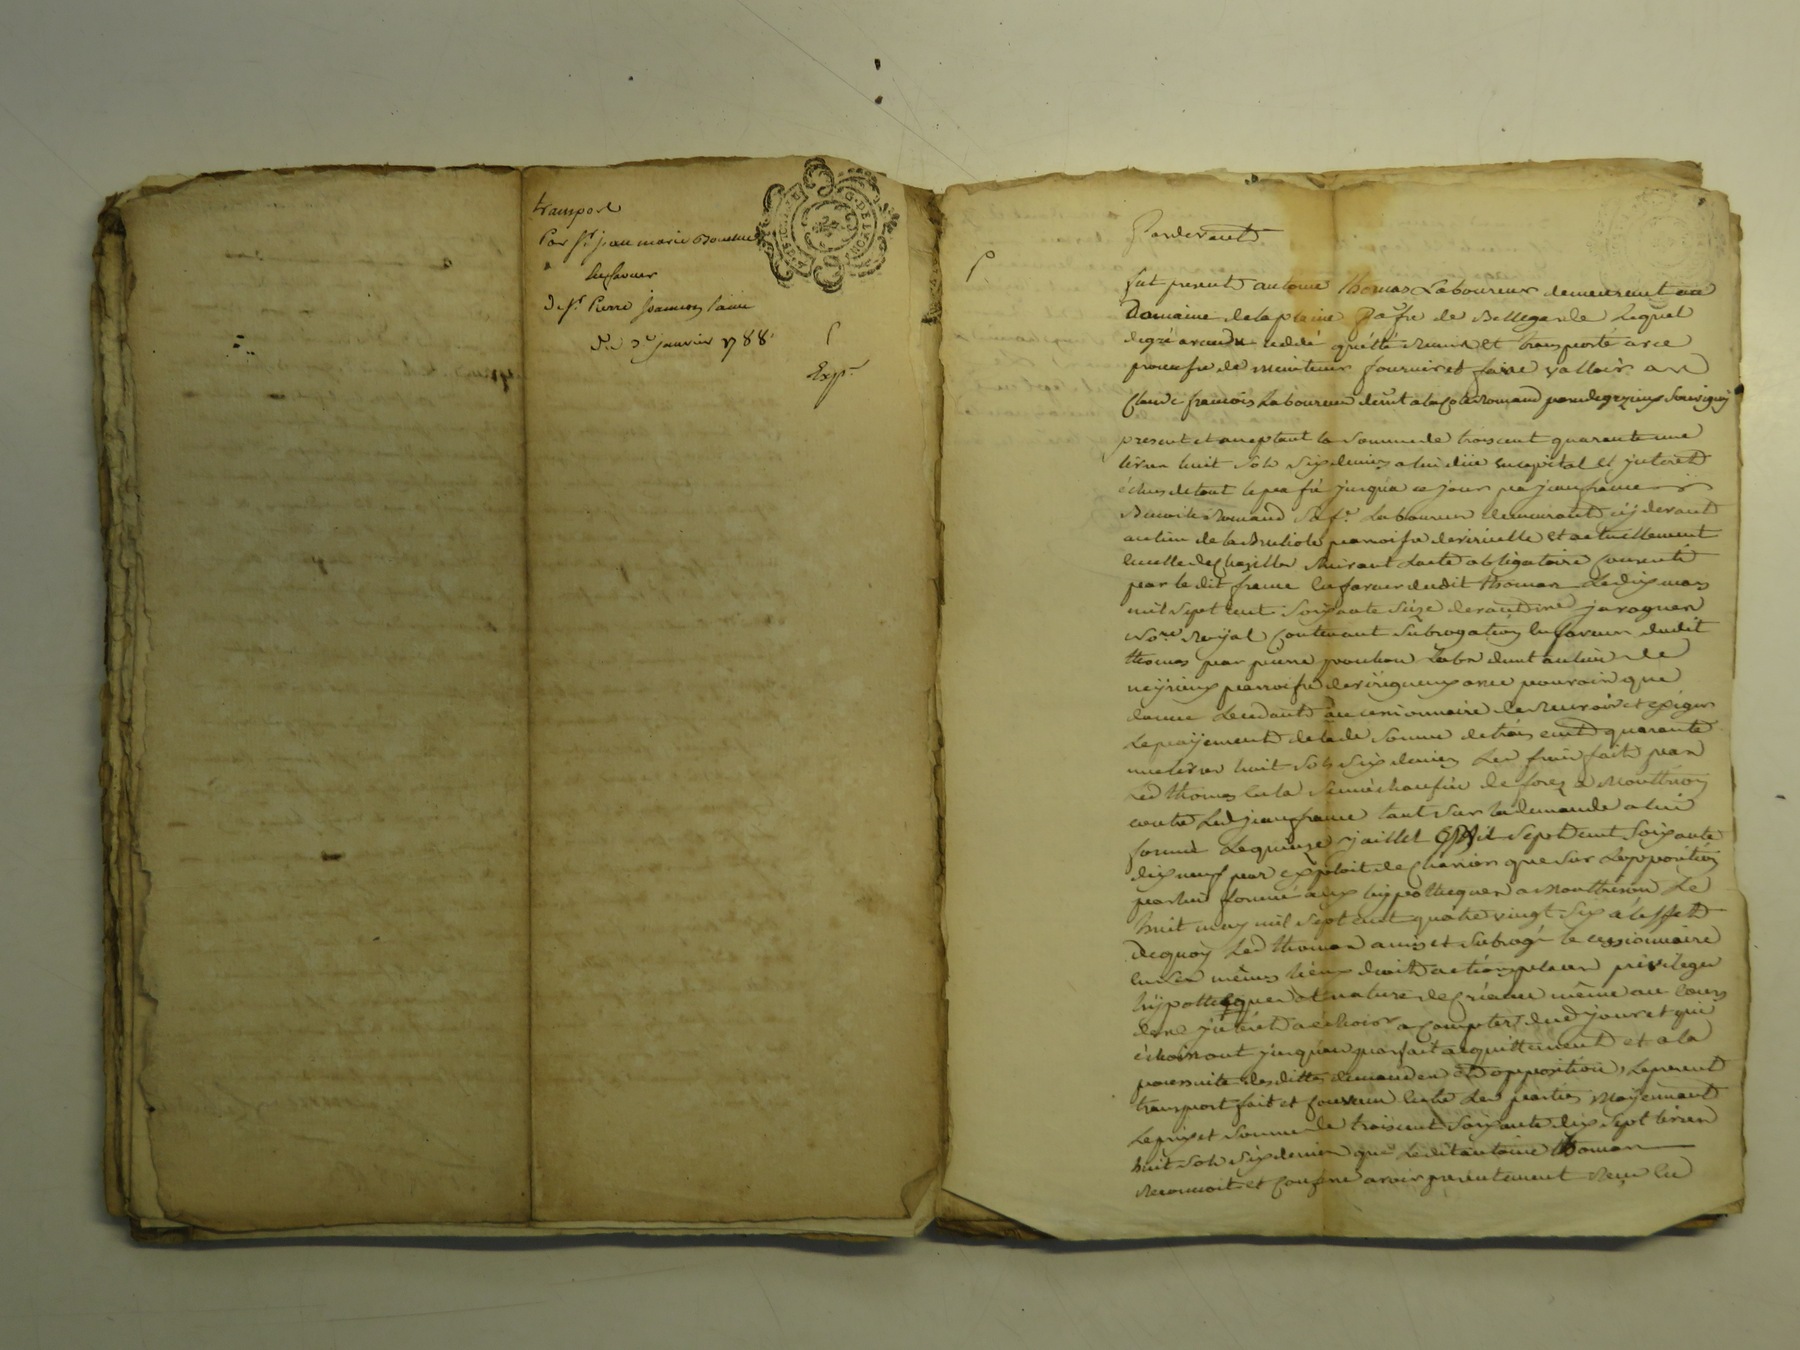 transport
Par Sr. jean marie
en faveur
de Sr. Pierre
Du 3e. janvier 1788.
Exp.
G. DE LYON
Pardevant
fut present antoine thomas Laboureur demeurant au
Domaine de la plaine de Bellegarde Lequel
de gré a vendu cedé quitté remis et transporté avec
promesse de maintenir fournir et faire valloir a
Claude françois Laboureur
present et acceptant la somme de troiscent quarante une
livres huit sols six deniers a lui düe en capital et jnteret
échus de tout le passé jusqu'a ce jour par jean france
Benoit Romand sa fe. Laboureur demeurant cy devant
au lieu de la paroisse de viricelle et actuellement
en celle de Chazelle suivant Lacte obligatoire consenti
par le dit france en faveur dudit thomas Le dix mars
mil sept cent soixante seize devant me
nore. Royal Contenant subrogation en faveur dudit
thomas par pierre au lieu de
paroisse de virigneux avec pouvoir que
donne Le cedant au cessionnaire de recevoir et exiger
Le payement de lade somme de trois cent quarante
une livres huit sols six deniers Les frais fait par
Led thomas en la sennéchaussée de forez a Montbrison
contre Led jean france tant sur la demande a lui
formée Le quinze juillet mil sept cent soixante
dix neuf par exploit de que sur Lopposition
par lui formée aux hyppotheques a Montbrison Le
huit may mil sept cent quatre vingt six a leffet
de quoy Led thomas a mis et subrogé le cessionnaire
en ses mêmes lieux droit actions places privileges
hyppotheques et nature de Créance même au cours
des jnteret a échoir a Compter dud jour et qui
échoiront jusquau parfait acquittement et a la
poursuite des dittes demandes et opposition, Le present
transport fait et convenu entre Les parties Moyennant
Le prix et somme de troiscent soixante dix sept livres
huit sols six deniers que Ledit antoine thomas
Reconnoit et Confesse avoir presentement Reçu en